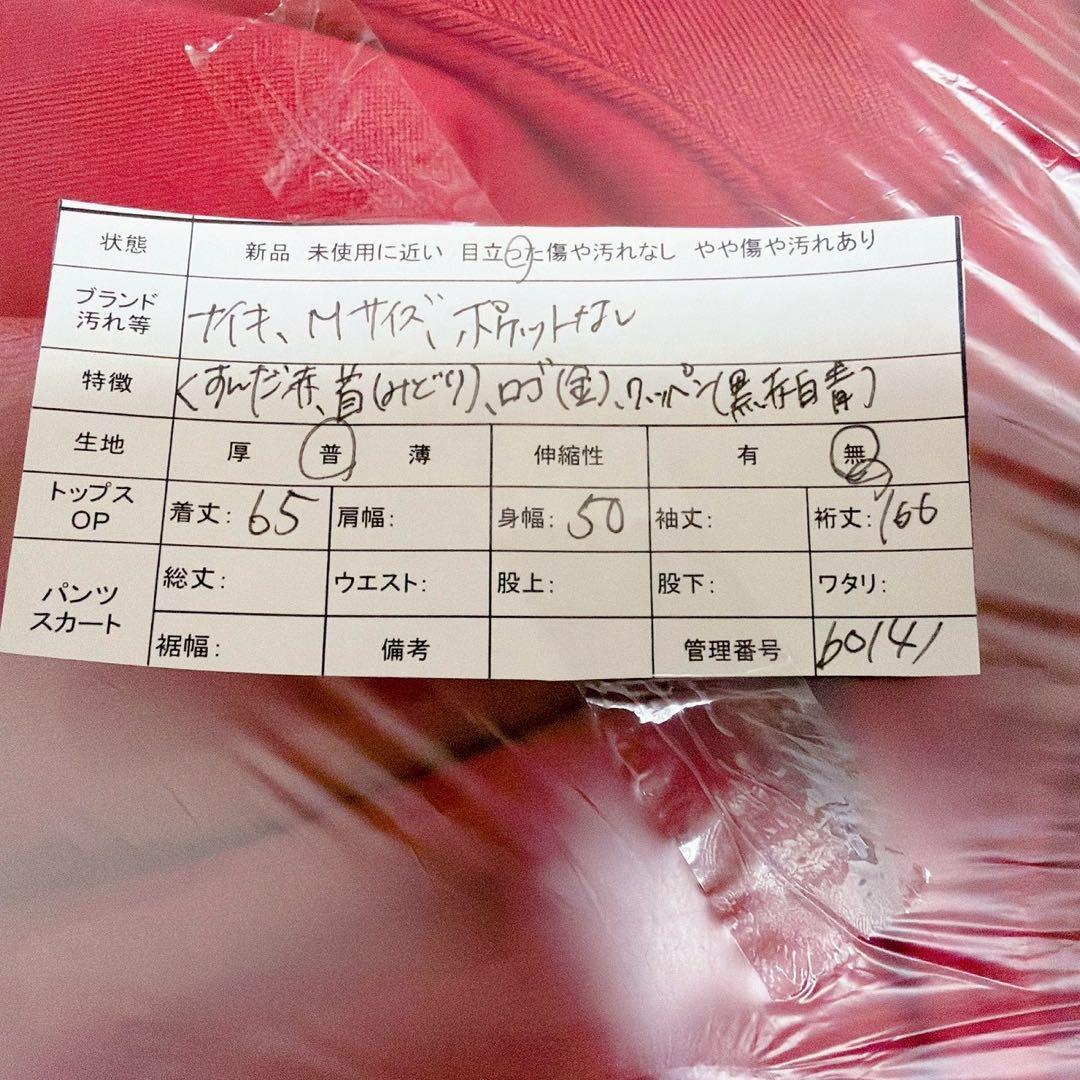 状態 新品 未使用に近い 目立った傷や汚れなし やや傷や汚れあり
ブランド 汚れ等 ナイキ、Mサイズ、ポケットなし
特徴 くすんだ赤、首(みどり)、ロゴ(金)、ワッペン(黒、赤白青)
生地 厚 普 薄 伸縮性 有 無
トップス OP 着丈: 65 肩幅: 身幅: 50 袖丈: 裄丈:
パンツ スカート 総丈: ウエスト: 股上: 股下: ワタリ:
裾幅: 備考 管理番号 60141